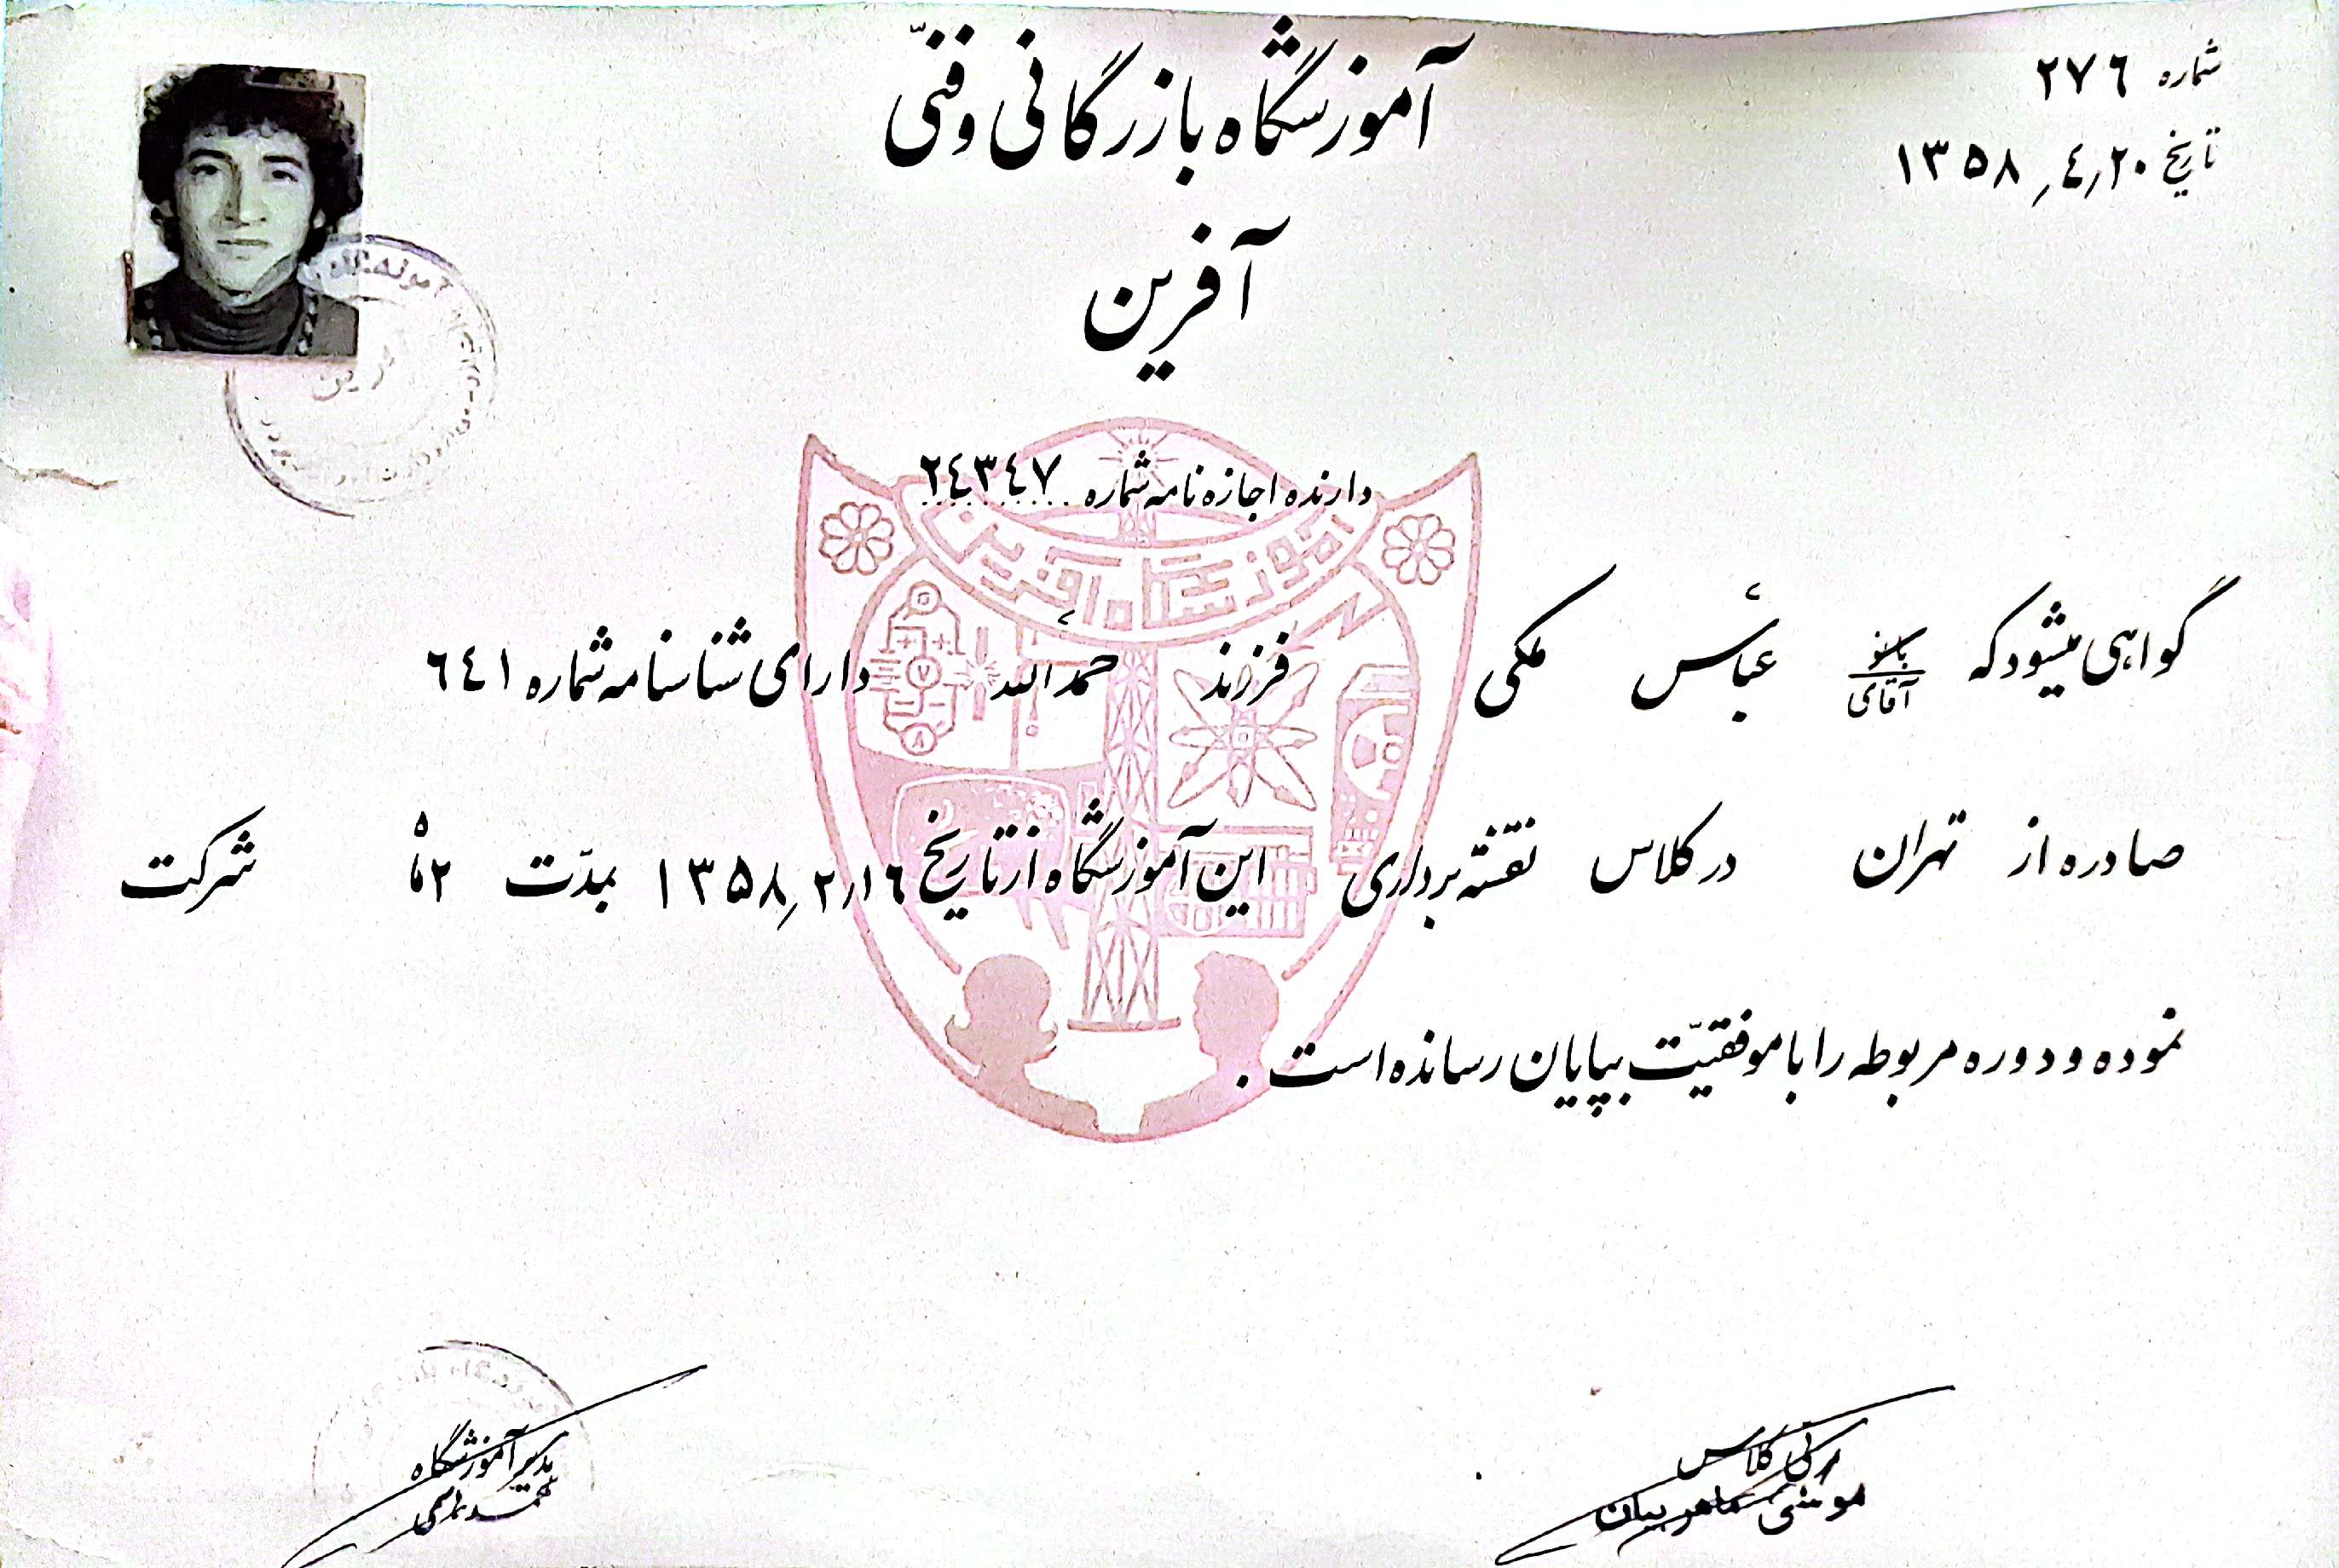 شماره ۲۷٦
تاریخ ۱۳۵۸٫٤٫۲۰
آموزشگاه بازرگانی و فنّی
آفرین
دارنده اجازه نامه شماره ۲٤۳٤۷
آموزشگاه آفرین
گواهی میشود که بانو آقای عبّاس ملکی فرزند حمدالله دارای شناسنامه شماره ٦٤۱
صادره از تهران در کلاس نقشه برداری این آموزشگاه از تاریخ ۱۳۵۸٫۲٫۱٦ بمدّت ۲ ماه شرکت
نموده و دوره مربوطه را با موفقیّت بپایان رسانده است .
کلاس
موسی
مدیر آموزشگاه
محمد